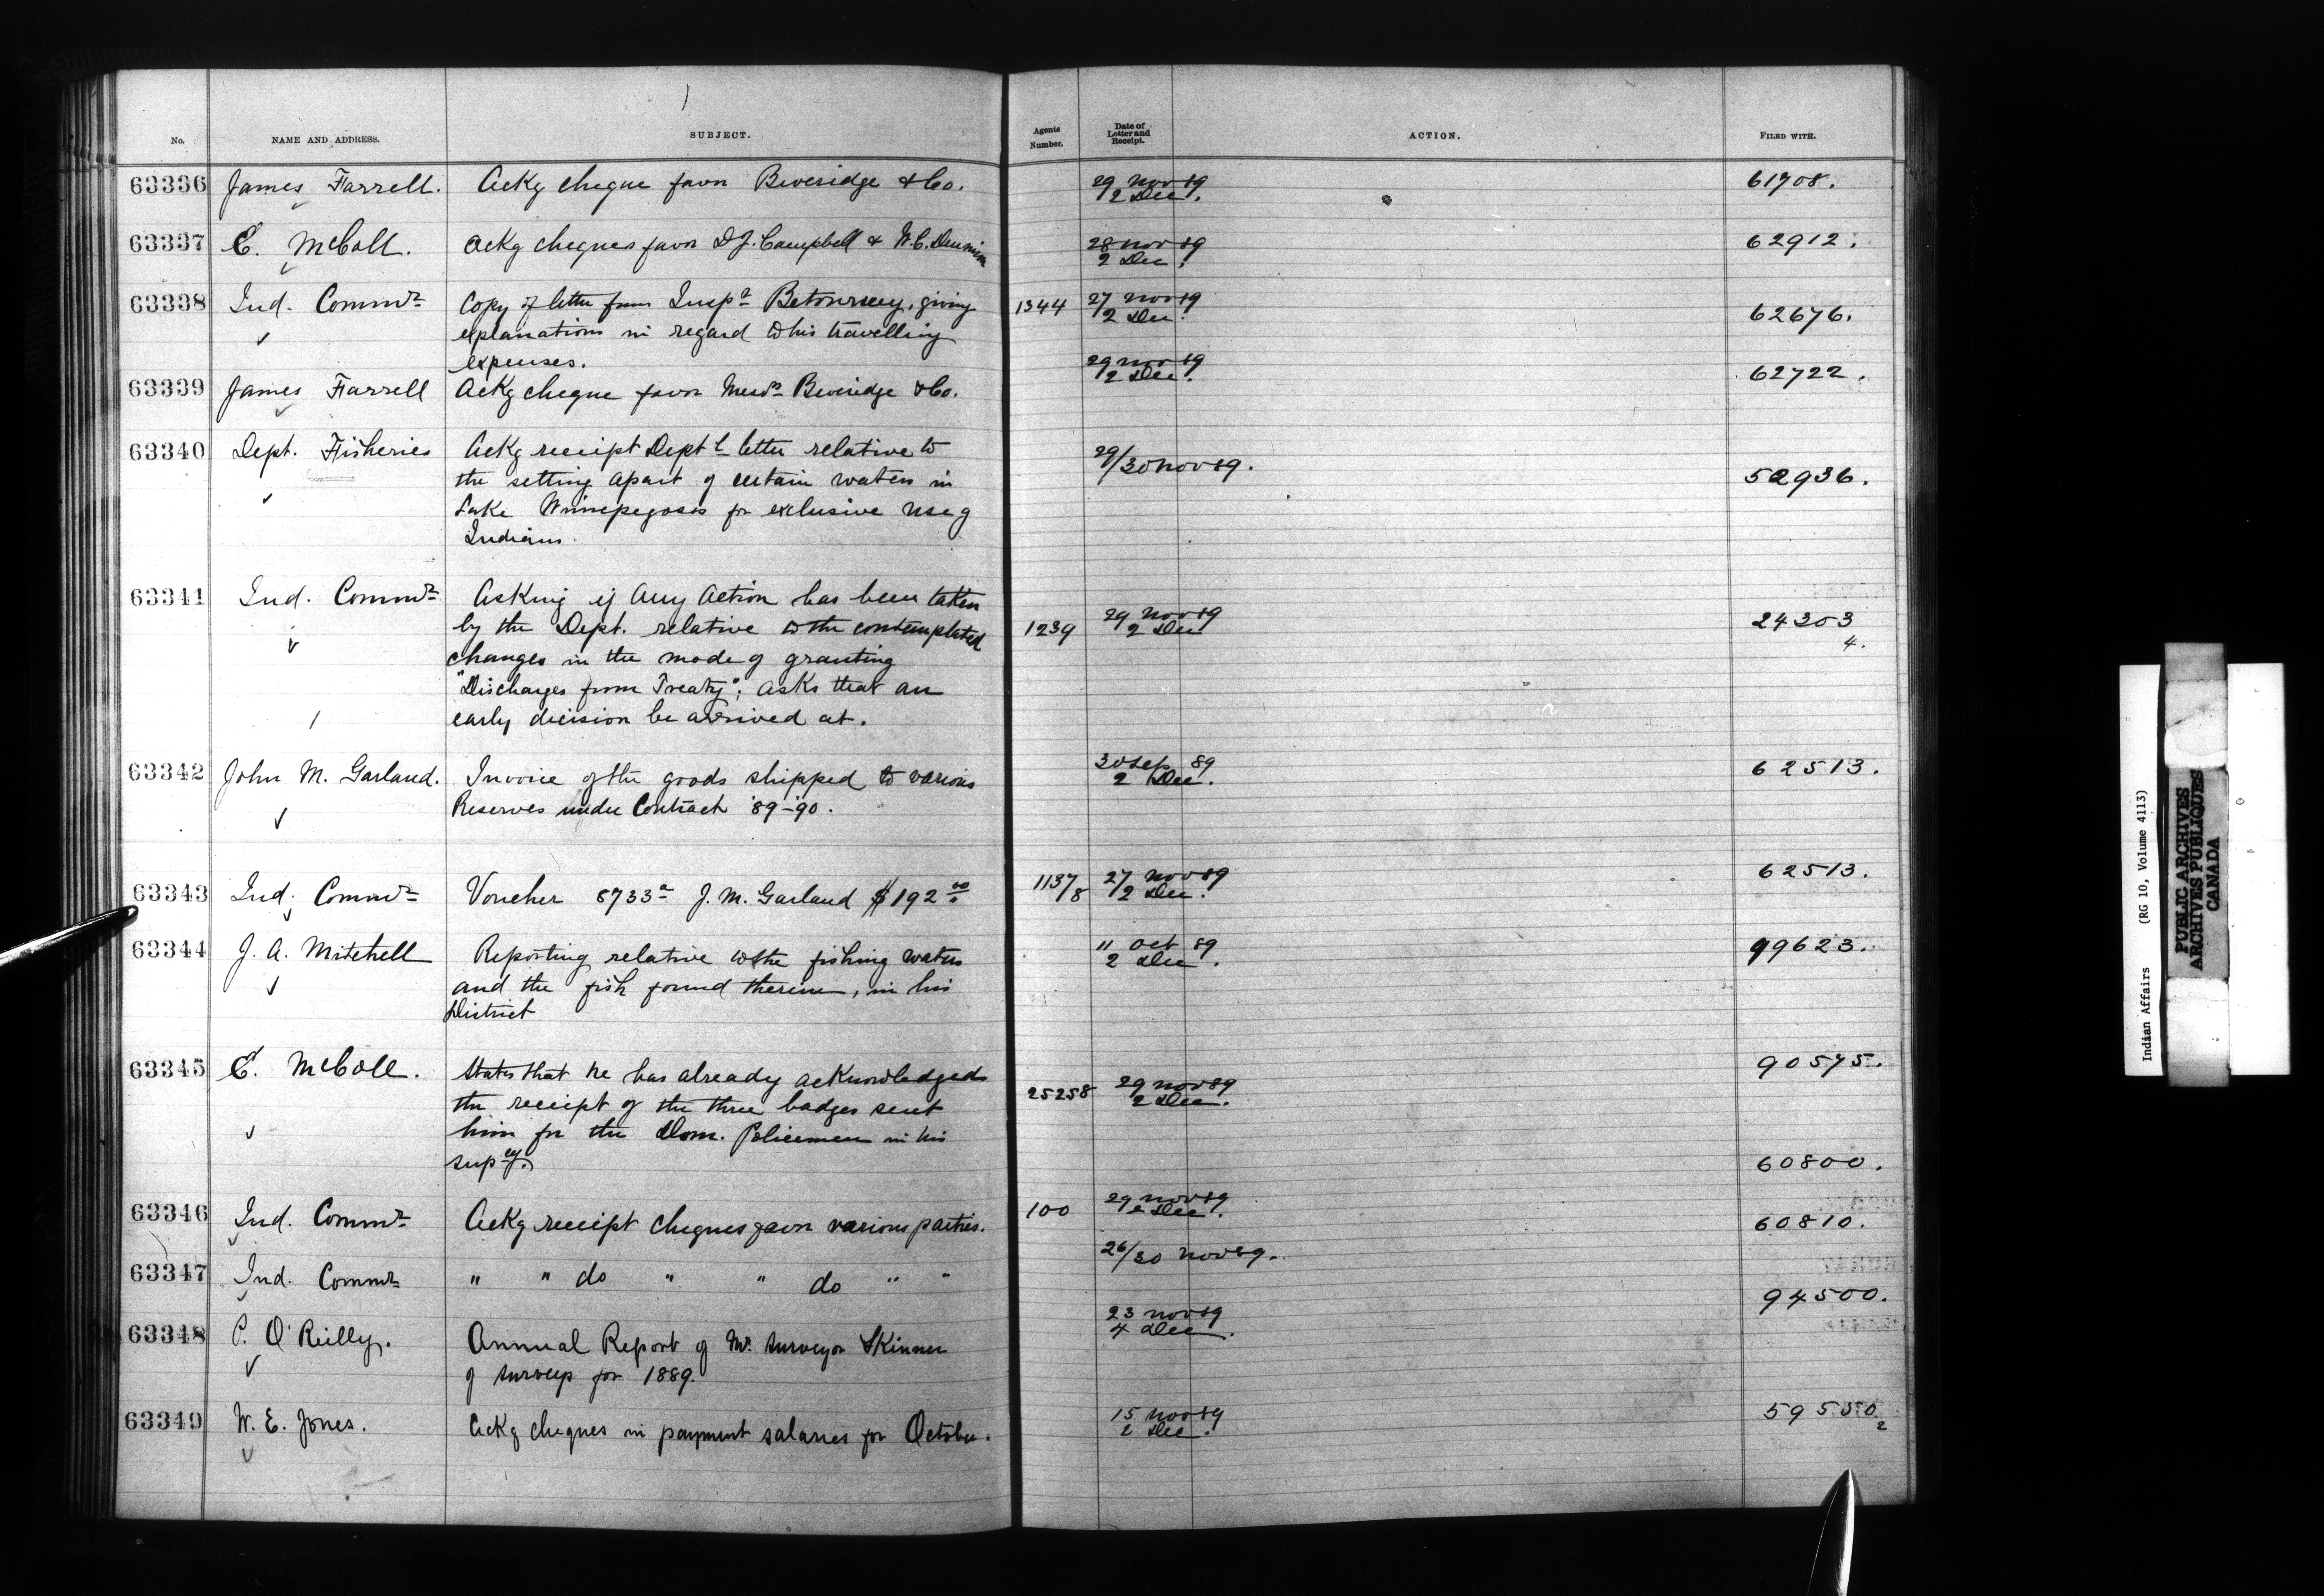 No. NAME AND ADDRESS. SUBJECT. Agents Number. Date of Letter and Receipt. ACTION. FILED WITH.
63336 James Farrell. Ackg cheque favor Beveridge & Co. 29 Nov 89 61708.
2 Dec.
63337 E. McColl. Ackg cheques favor D J. Campbell & W. C. 28 Nov 89 62912.
2 Dec.
63338 Ind. Commr Copy of letter from Inspr Betournay, giving 1344 27 Nov 89 62676.
explanations in regard to his travelling 2 Dec.
expenses.
63339 James Farrell Ackg cheque favor Messrs Beveridge & Co. 29 Nov 89 62722.
2 Dec.
63340 Dept. Fisheries Ackg receipt Deptl letter relative to 29/30 Nov 89. 52936.
the setting apart of certain waters in
Lake Winnipegosis for exclusive use of
Indians.
63341 Ind. Commr Asking if any action has been taken 29 Nov 89 24303
by the Dept. relative to the contemplated 1239 2 Dec 4.
changes in the mode of granting
"Discharges from Treaty"; asks that an
early decision be arrived at.
63342 John M. Garland. Invoice of the goods shipped to various 30 Sep 89 62513.
Reserves under Contract '89-'90. 2 Dec.
63343 Ind. Commr Voucher 8733a J. M. Garland $192 00 1137/8 27 Nov 89 62513.
2 Dec.
63344 J. A. Mitchell Reporting relative to the fishing waters 11 Oct 89 99623.
and the fish found therein, in his 2 Dec.
District
63345 E. McColl. States that he has already acknowledged 25258 29 Nov 89 90575.
the receipt of the three badges sent 2 Dec.
him for the Dom. Policemen in his
supcy. 60800.
63346 Ind. Commr Ackg receipt cheques favor various parties. 100 29 Nov 89
2 Dec. 60810.
63347 Ind. Commr " " do " " do " " 26/30 Nov 89.
94500.
63348 P. O'Reilly. Annual Report of Mr. Surveyor Skinner 23 Nov 89
of surveys for 1889. 4 Dec.
63349 W. E. Jones. Ackg cheques in payment salaries for October. 15 Nov 89 59550
2 Dec. 2
Indian Affairs (RG 10, Volume 4113)
PUBLIC ARCHIVES
ARCHIVES PUBLIQUES
CANADA